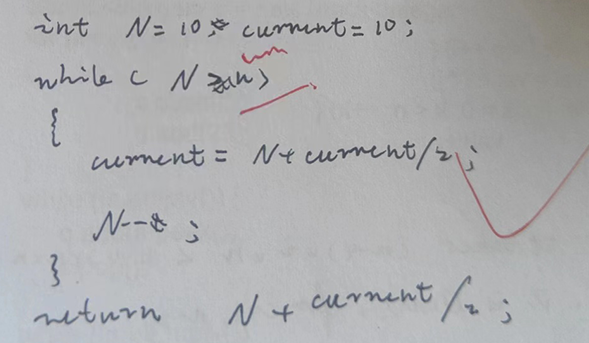 int N = 10, current = 10;
while ( N > n)
{
current = N + current/2;
N-- ;
}
return N + current/2;